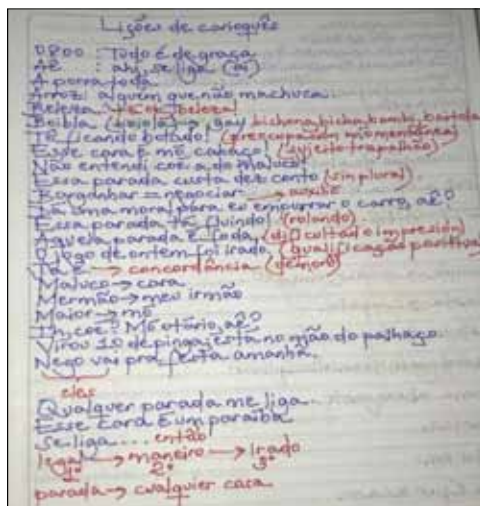 Lições de carioquês
0800 : Tudo é de graça
AÊ : ahi, se liga (aí)
A porra toda
Arroz: alguém que não machuca.
Beleza. Tá ok, beleza!
Boibla (boiola) → gay bichona, bicha, bambi, baitola
Tá ficando bolado! (preocupación momentánea)
Esse cara é mó cabaço! (sujeito trapalhão)
Não entendi coé a do maluco!
Essa parada custa dez conto (sin plural)
Barganhar = negociar → auxílio
Dá uma moral para eu empurrar o carro, aê?
Essa parada tá fluindo! (rolando)
Aquela parada é foda, (dificultad o impresión)
O jogo de ontem foi irado (qualificação positiva)
Tá é → concordância (demorô)
Maluco → cara
Mermão → meu irmão
Maior → mó
Ih, coé? Mó otário, aê?
Virou 10 de pinga, está no mjão do palhaço.
Nego vai pra festa amanhã.
eles
Qualquer parada me liga...
Esse cara é um paraíba
Se liga... então
legal → maneiro → irado
1º 2º 3º
parada → cualquier cosa